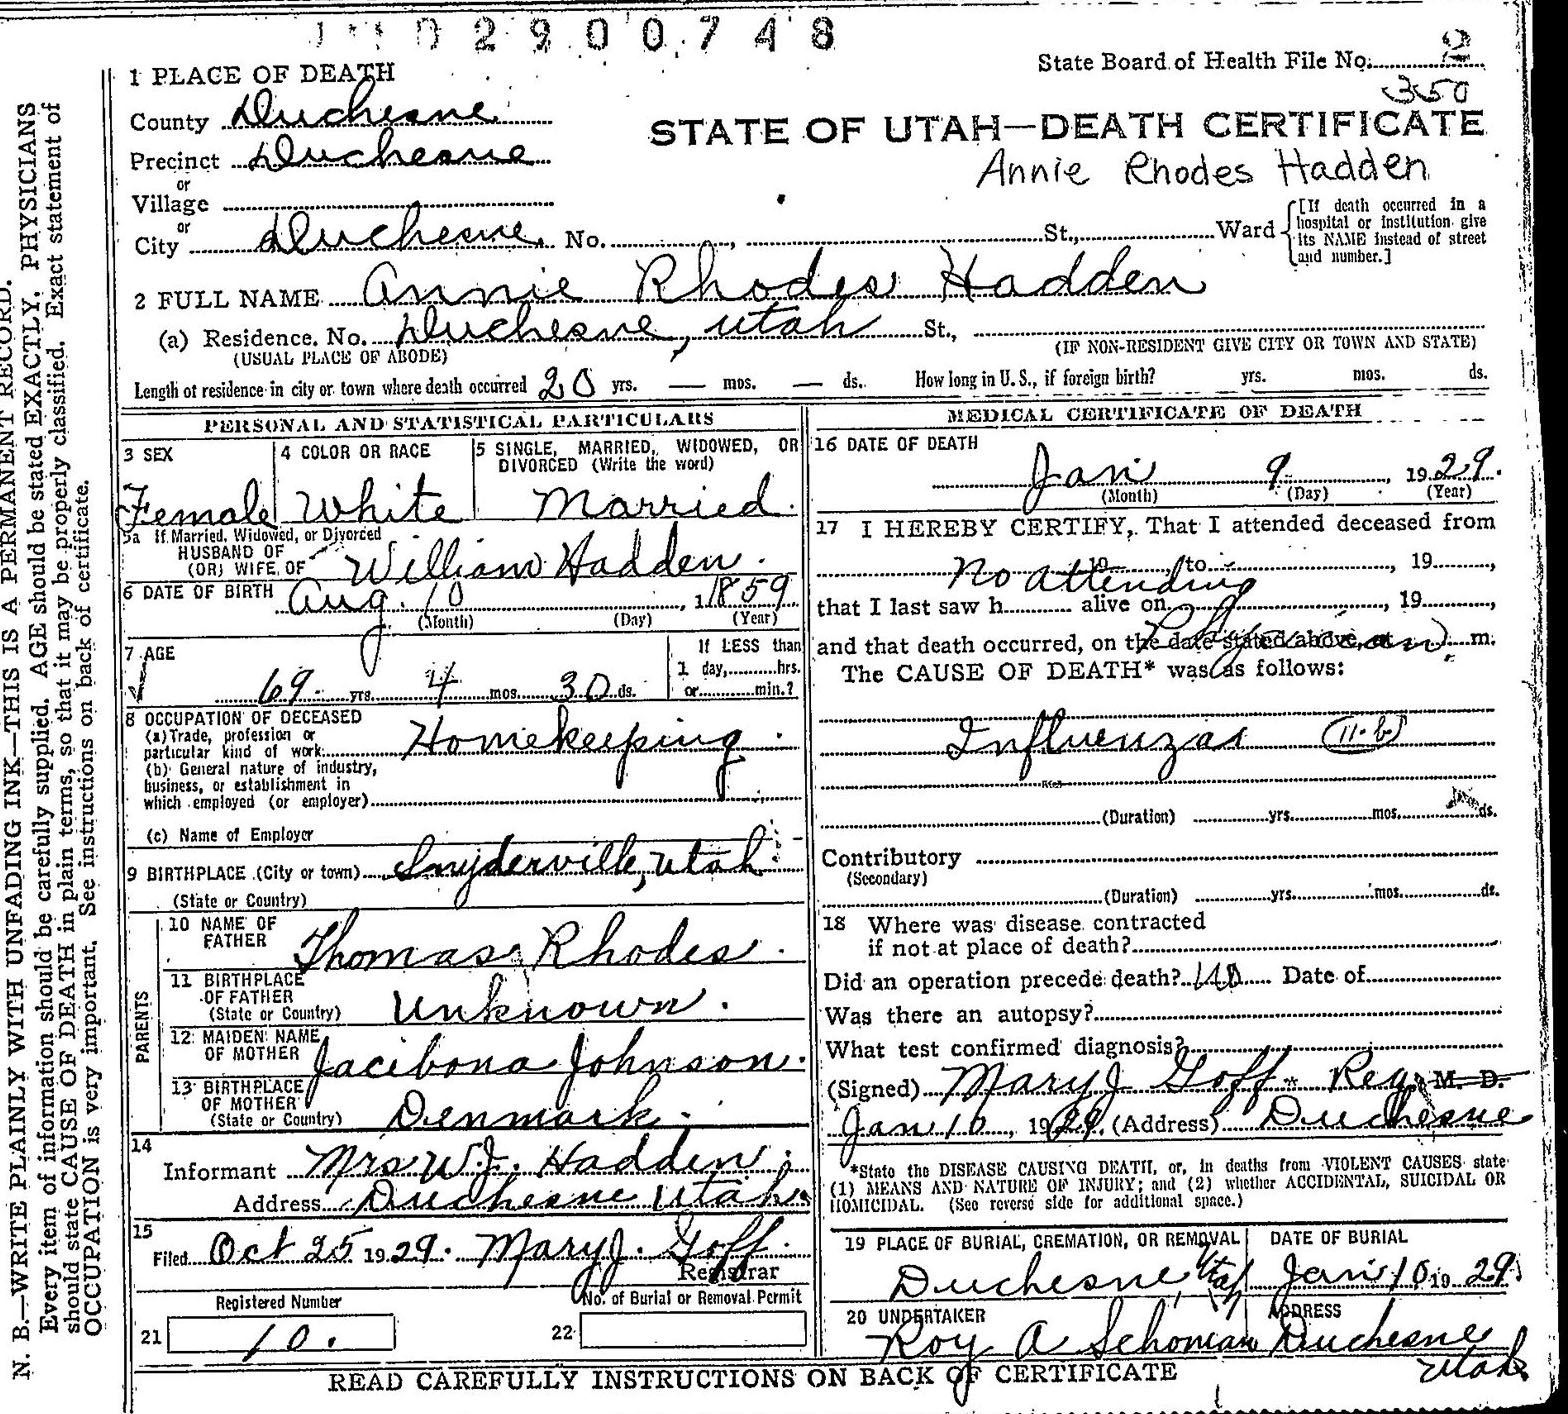 2900748
State Board of Health File No. 2
350
1 PLACE OF DEATH
County Duchesne
STATE OF UTAH—DEATH CERTIFICATE
Precinct Duchesne
Annie Rhodes Hadden
or
Village
or
City Duchesne No. , St., Ward
[If death occurred in a
hospital or institution give
its NAME instead of street
and number.]
2 FULL NAME Annie Rhodes Hadden
(a) Residence. No. Duchesne, Utah St.,
(USUAL PLACE OF ABODE) (IF NON-RESIDENT GIVE CITY OR TOWN AND STATE)
Length of residence in city or town where death occurred 20 yrs. — mos. — ds. How long in U. S., if foreign birth? yrs. mos. ds.
PERSONAL AND STATISTICAL PARTICULARS
3 SEX
Female
4 COLOR OR RACE
White
5 SINGLE, MARRIED, WIDOWED, OR
DIVORCED (Write the word)
Married.
5a If Married, Widowed, or Divorced
HUSBAND OF
(OR) WIFE OF William Hadden.
6 DATE OF BIRTH Aug. 10, 1859
(Month) (Day) (Year)
7 AGE
69 yrs. 4 mos. 30 ds.
If LESS than
1 day, hrs.
or min.?
8 OCCUPATION OF DECEASED
(a) Trade, profession or
particular kind of work Homekeeping.
(b) General nature of industry,
business, or establishment in
which employed (or employer)
(c) Name of Employer
9 BIRTHPLACE (City or town) Snyderville, Utah
(State or Country)
PARENTS
10 NAME OF
FATHER Thomas Rhodes.
11 BIRTHPLACE
OF FATHER
(State or Country) Unknown.
12 MAIDEN NAME
OF MOTHER Jacibona Johnson.
13 BIRTHPLACE
OF MOTHER
(State or Country) Denmark.
14
Informant Mrs W. J. Hadden.
Address Duchesne Utah.
15
Filed Oct 25 1929. Mary J. Goff.
Registrar
Registered Number
21 10.
No. of Burial or Removal Permit
22
MEDICAL CERTIFICATE OF DEATH
16 DATE OF DEATH
Jan 9, 1929.
(Month) (Day) (Year)
17 I HEREBY CERTIFY, That I attended deceased from
No attending to , 19 ,
that I last saw h alive on , 19 ,
and that death occurred, on the date stated above, at m.
Physician
The CAUSE OF DEATH* was as follows:
Influenza 11-b
(Duration) yrs. mos. ds.
Contributory
(Secondary)
(Duration) yrs. mos. ds.
18 Where was disease contracted
if not at place of death?
Did an operation precede death? no Date of
Was there an autopsy?
What test confirmed diagnosis?
(Signed) Mary J Goff Reg. M. D.
Jan 10, 1929. (Address) Duchesne
*State the DISEASE CAUSING DEATH, or, in deaths from VIOLENT CAUSES state
(1) MEANS AND NATURE OF INJURY; and (2) whether ACCIDENTAL, SUICIDAL OR
HOMICIDAL. (See reverse side for additional space.)
19 PLACE OF BURIAL, CREMATION, OR REMOVAL
Duchesne, Utah
DATE OF BURIAL
Jan 10 1929.
20 UNDERTAKER
Roy A Schonian
ADDRESS
Duchesne
Utah
READ CAREFULLY INSTRUCTIONS ON BACK OF CERTIFICATE
N. B.—WRITE PLAINLY WITH UNFADING INK—THIS IS A PERMANENT RECORD.
Every item of information should be carefully supplied. AGE should be stated EXACTLY. PHYSICIANS
should state CAUSE OF DEATH in plain terms, so that it may be properly classified. Exact statement of
OCCUPATION is very important. See instructions on back of certificate.